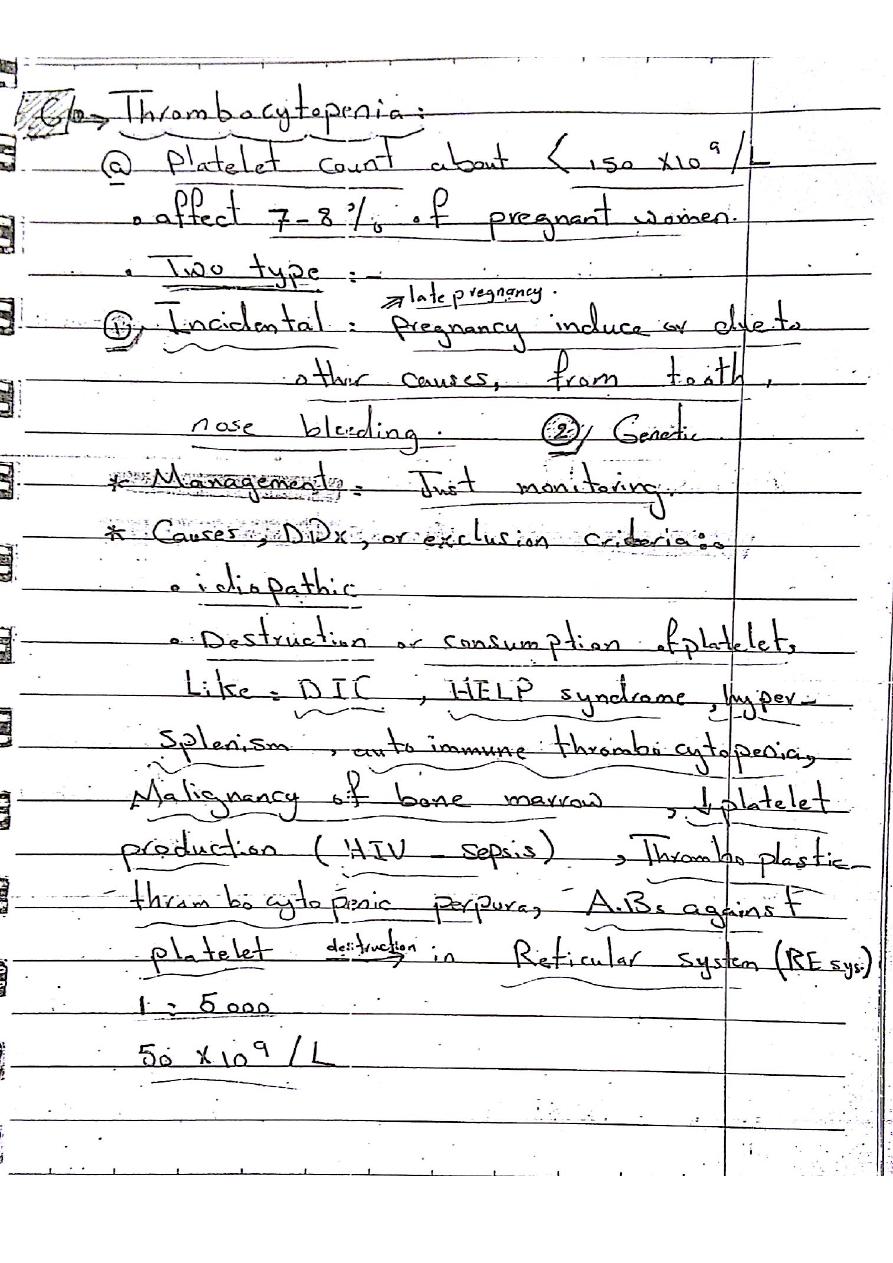 C/ → Thrombocytopenia:
ⓐ Platelet count about < 150 x10⁹/L
• affect 7-8% of pregnant women.
• Two type :-
⇒ late pregnancy.
①, Incidental : pregnancy induce or due to
other causes, from tooth,
nose bleeding. ②/ Genetic
* Management: Just monitoring.
* Causes, DDx, or exclusion criteria:
• idiopathic
• Destruction or consumption of platelet,
Like: DIC, HELP syndrome, hyper-
splenism, auto immune thrombocytopenia,
Malignancy of bone marrow, ↓ platelet
production (HIV - sepsis), Thrombo plastic-
thrombocytopenic perpura, A.Bs against
platelet destruction → in Reticular system (RE sys.)
1 : 5000
50 x10⁹/L